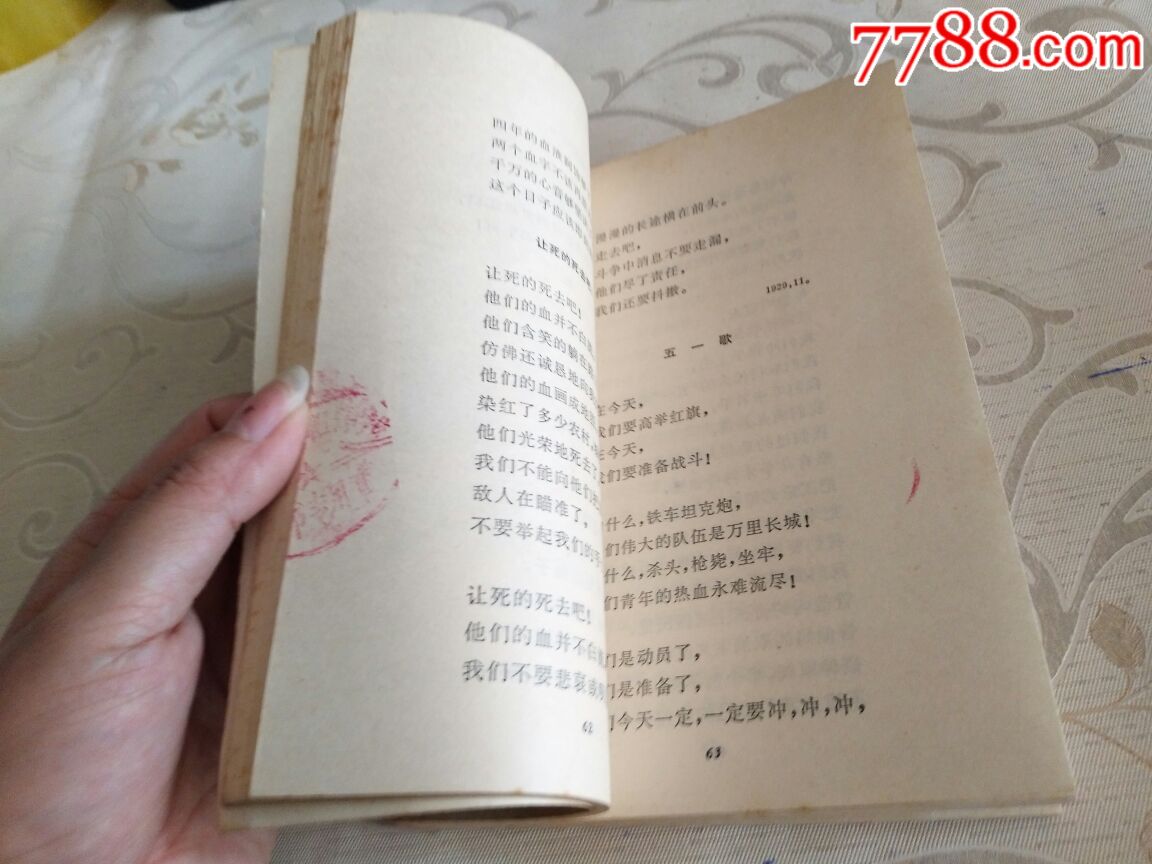 7788.com
四年的血液
两个血字不
千万的心音够
这个日子应该
让死的死去
让死的死去吧！
他们的血并不白
他们含笑的躺在
仿佛还诚恳地向
他们的血画成地
染红了多少农村，
他们光荣地死去了
我们不能向他们
敌人在瞄准了，
不要举起我们的
让死的死去吧！
他们的血并不白
我们不要悲哀
62
漫漫的长途横在前头。
走去吧，
斗争中消息不要走漏，
他们尽了责任，
我们还要抖擞。
1929，11。
五一歌
在今天，
我们要高举红旗，
在今天，
我们要准备战斗！
什么，铁车坦克炮，
们伟大的队伍是万里长城！
什么，杀头，枪毙，坐牢，
们青年的热血永难流尽！
们是动员了，
们是准备了，
们今天一定，一定要冲，冲，冲，
63